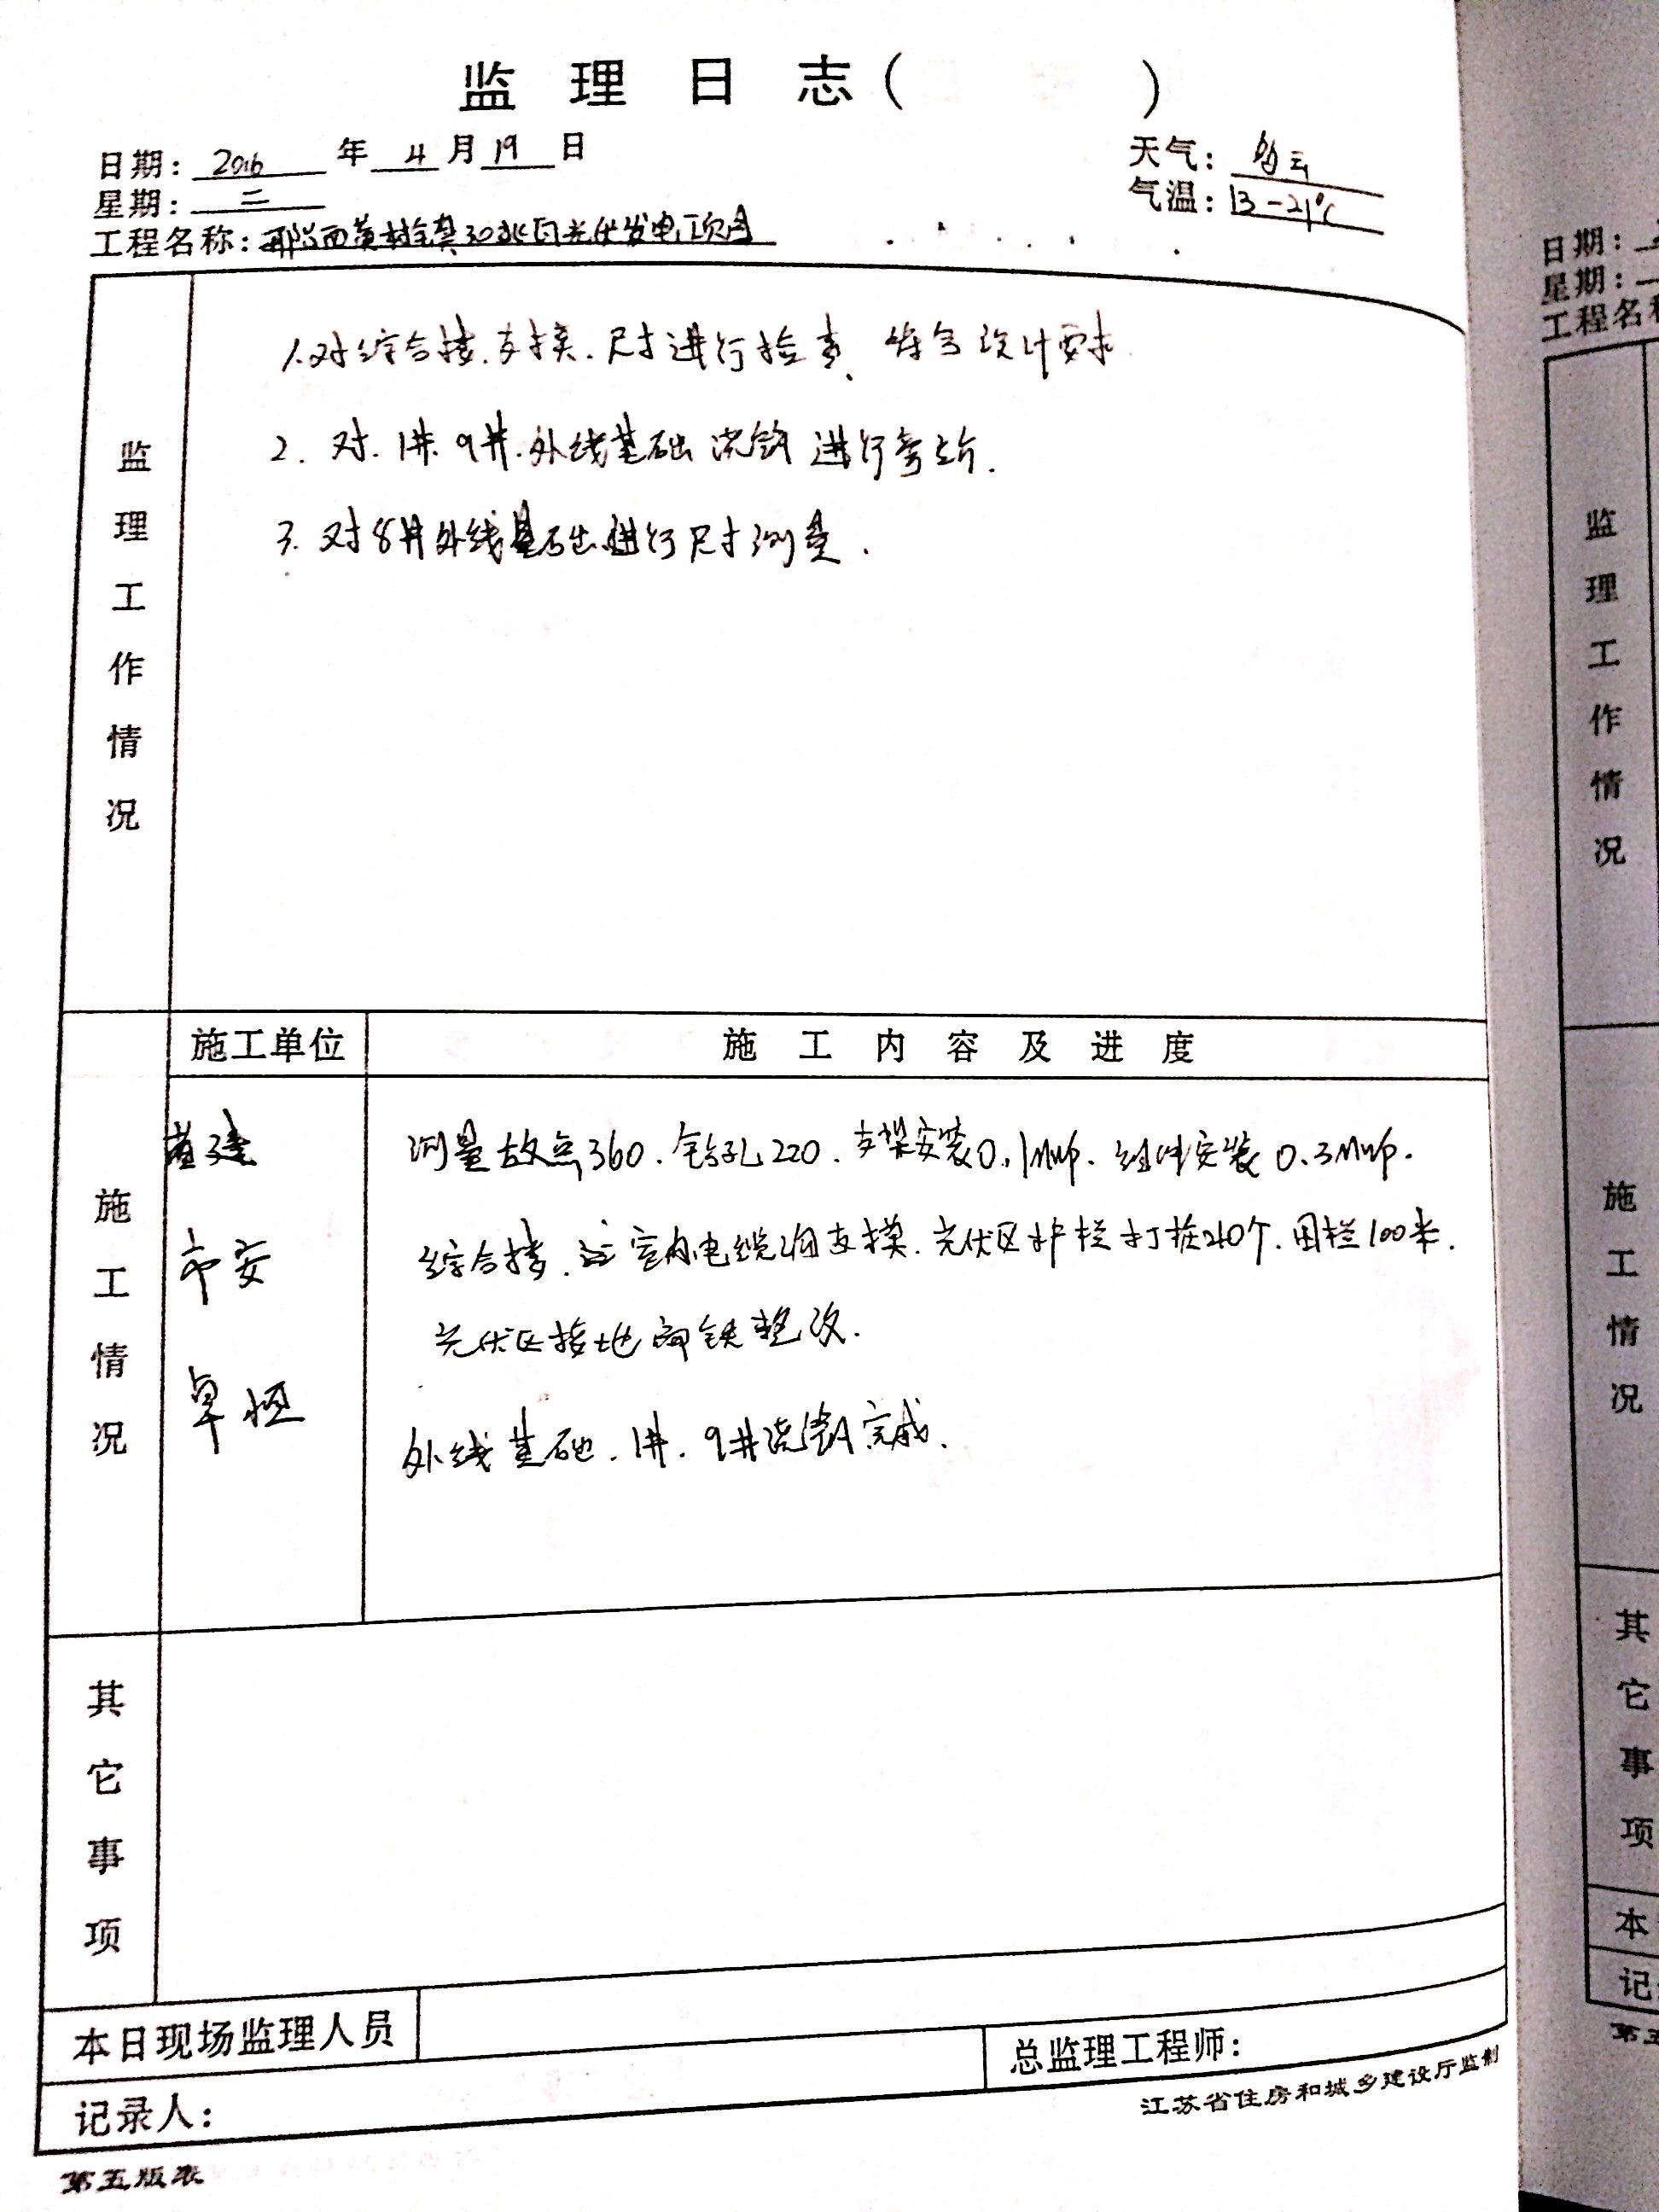 监理日志( )
日期: 2016 年 4 月 19 日
天气: 多云
星期: 二
气温: 13-21℃
工程名称: 邢台西黄村镇30兆瓦光伏发电项目
监理工作情况
1.对综合楼.支模.尺寸进行检查、符合设计要求
2. 对.1井.9井.外线基础浇筑进行旁站.
3. 对8井外线基础进行尺寸测量.
施工情况
施工单位
施工内容及进度
测量放点360.钻孔220.支架安装0.1Mwp.组件安装0.3Mwp.
市安
综合楼.室内电缆沟支模.光伏区护栏打桩210个.围栏100米.
光伏区接地扁铁整改.
卓恒
外线基础.1井.9井浇筑完成.
其它事项
本日现场监理人员
总监理工程师:
记录人:
江苏省住房和城乡建设厅监制
第五版表
日期:
星期:
工程名称
监理工作情况
施工情况
其它事项
本
记
第五